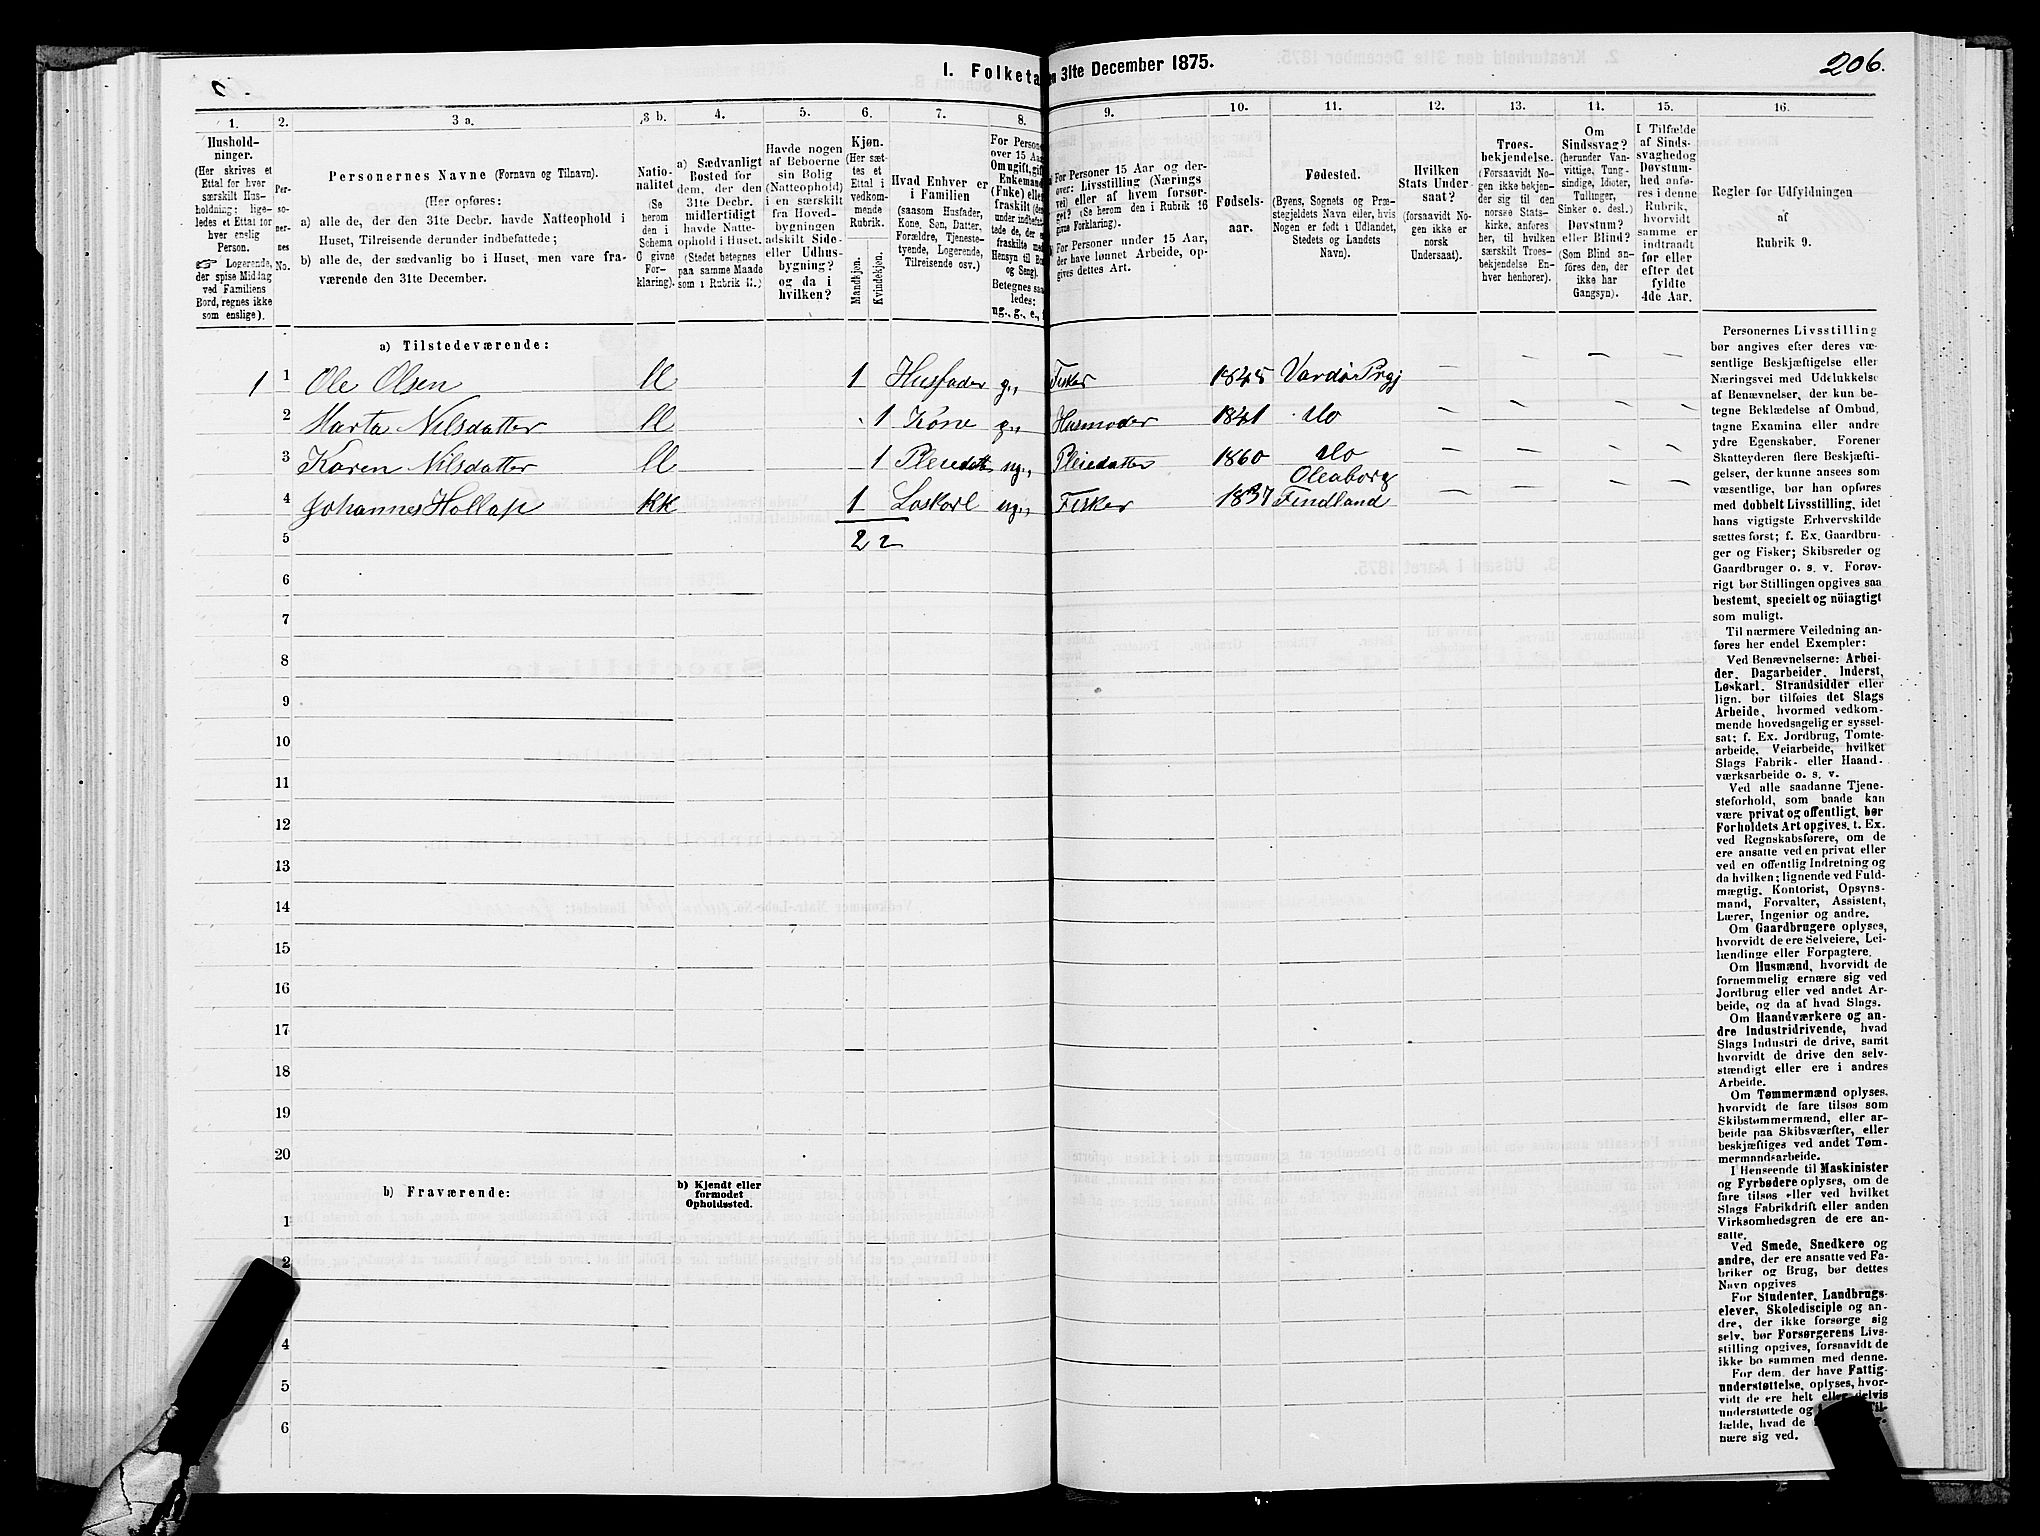 I. Folketa
n 31te December 1875.
206.
1.
Hushold-
ninger.
(Her skrives et
Ettal for hver
særskilt Hus-
holdning; lige-
ledes et Ettal for
hver enslig
Person.
☞ Logerende,
der spise Middag
ved Familiens
Bord, regnes ikke
som enslige).
2.
Per-
so-
ner-
nes
No.
3 a.
Personernes Navne (Fornavn og Tilnavn).
(Her opføres:
a) alle de, der den 31te Decbr. havde Natteophold i
Huset, Tilreisende derunder indbefattede;
b) alle de, der sædvanlig bo i Huset, men vare fra-
værende den 31te December.
3 b.
Natio-
nalitet
(Se
herom
den i
Schema
C givne
For-
klaring).
4.
a) Sædvanligt
Bosted for
dem, der den
31te Decbr.
midlertidigt
havde Natte-
ophold i Huset.
(Stedet betegnes
paa samme Maade
som i Rubrik 11.)
5.
Havde nogen
af Beboerne
sin Bolig
(Natteophold)
i en særskilt
fra Hoved-
bygningen
adskilt Side-
eller Udhus-
bygning?
og da i
hvilken?
6.
Kjøn.
(Her sæt-
tes et
Ettal i
vedkom-
mende
Rubrik.
Mandkjøn.
Kvindekjøn.
7.
Hvad Enhver er
i Familien
(saasom Husfader,
Kone, Søn, Datter,
Forældre, Tjeneste-
tyende, Logerende,
Tilreisende osv.)
8.
For Persone
over 15 Aar
Om ugift, gift
Enkemand
(Enke) eller
fraskilt (der-
under indbefat-
tede de, der er
fraskilte med
Hensyn til Bo
og Seng).
Betegnes saa-
ledes:
ug., g., e., f
9.
For Personer 15 Aar og der-
over: Livsstilling (Nærings
vei) eller af hvem forsør-
get? (Se herom den i Rubrik 16
givne Forklaring).
For Personer under 15 Aar,
der have lønnet Arbeide, op-
gives dettes Art.
10.
Fødsels-
aar.
11.
Fødested.
(Byens, Sognets og Præ-
stegjeldets Navn eller, hvis
Nogen er født i Udlandet,
Stedets og Landets
Navn).
12.
Hvilken
Stats Under-
saat?
(forsaavidt No-
gen ikke er
norsk
Undersaat).
13.
Troes-
bekjendelse.
(Forsaavidt No-
gen ikke bekjen-
der sig til den
norske Stats-
kirke, anføres
her, til hvilken
særskilt Troes-
bekjendelse En-
hver henhører).
14.
Om
Sindssvag?
(herunder Van-
vittige, Tung-
sindige, Idioter,
Tullinger,
Sinker o. desl.)
Døvstum?
eller Blind?
(Som Blind an-
føres den, der
ikke har
Gangsyn).
15.
I Tilfælde
af Sinds-
svaghed og
Døvstum-
hed anfø-
res i denne
Rubrik,
hvorvidt
samme er
indtraadt
før eller
efter det
fyldte
4de Aar.
16.
Regler for Udfyldningen
af
Rubrik 9.
a) Tilstedeværende:
1 1 Ole Olsen M 1 Husfader g., Fisker 1845 Vardø Prgj — — — —
2 Marta Nilsdatter M 1 Kone g., Husmoder 1841 Do — — — —
3 Karen Nilsdatter M 1 Pleiedatter ug., Pleiedatter 1860 Do — — — —
4 Johannes Hollap kk 1 Løskarl ug., Fisker 1837 Oleaborg
Findland — — — —
5 2 2
6
7
8
9
10
11
12
13
14
15
16
17
18
19
20
b) Fraværende:
b) Kjendt eller
formodet
Opholdssted.
1
2
4
5
6
Personernes Livsstilling
bør angives efter deres væ-
sentlige Beskjæftigelse eller
Næringsvei med Udelukkelse
af Benævnelser, der kun be-
tegne Beklædelse af Ombud,
tagne Examina eller andre
ydre Egenskaber. Forener
Skatteyderen flere Beskjæfti-
gelser, der kunne ansees som
væsentlige, bør han opføres
med dobbelt Livsstilling, idet
hans vigtigste Erhvervskilde
sættes først; f. Ex. Gaardbru-
ger og Fisker; Skibsreder og
Gaardbruger o. s. v. Forøv-
rigt bør Stillingen opgives saa
bestemt, specielt og nöiagtigt
som muligt.
Til nærmere Veiledning an-
føres her endel Exempler:
Ved Benævnelserne: Arbei-
der, Dagarbeider, Inderst,
Løskarl, Strandsidder eller
lign. bør tilføies det Slags
Arbeide, hvormed vedkom-
mende hovedsagelig er syssel-
sat; f. Ex. Jordbrug, Tomte-
arbeide, Veiarbeide, hvilket
Slags Fabrik- eller Haand-
værksarbeide o. s. v.
Ved alle saadanne Tjene-
steforhold, som baade kan
være privat og offentligt, bør
Forholdets Art opgives, t. Ex.
ved Regnskabsførere, om de
ere ansatte ved en privat eller
ved en offentlig Indretning og
da hvilken; lignende ved Fuld-
mægtig, Kontorist, Opsyns-
mand, Forvalter, Assistent,
Lærer, Ingeniør og andre.
Om Gaardbrugere oplyses,
hvorvidt de ere Selveiere, Lei-
lændinge eller Forpagtere.
Om Husmænd, hvorvidt de
fornemmelig ernære sig ved
Jordbrug eller ved andet Ar-
beide, og da af hvad Slags.
Om Haandværkere og an-
dre Industridrivende, hvad
Slags Industri de drive, samt
hvorvidt de drive den selv-
stændigt eller ere i andres
Arbeide.
Om Tømmermænd oplyses,
hvorvidt de fare tilsøs som
Skibstømmermænd, eller ar-
beide paa Skibsværfter, eller
beskjæftiges ved andet Tøm-
mermandsarbeide.
I Henseende til Maskinister
og Fyrbødere oplyses, om de
fare tilsøs eller ved hvilket
Slags Fabrikdrift eller anden
Virksomhedsgren de ere an-
satte.
Ved Smede, Snedkere og
andre, der ere ansatte ved Fa-
briker og Brug, bør dettes
Navn opgives
For Studenter, Landbrugs-
elever, Skoledisciple og an-
dre, der ikke forsørge sig
selv, bør Forsørgerens Livs-
stilling opgives, forsaavidt de
ikke bo sammen med denne.
For dem, der have Fattig-
understøttelse, oplyses, hvor-
vidt de ere helt eller delvis
understøttede og Til-
fælde, hvad de
nære sig ved.